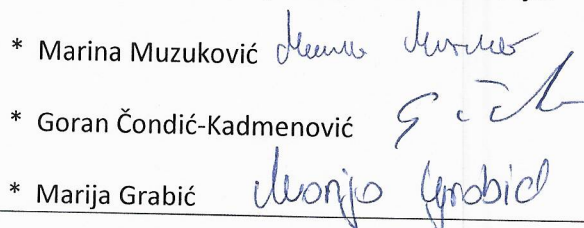 * Marina Muzuković
* Goran Čondić-Kadmenović
* Marija Grabić Marija Grabić